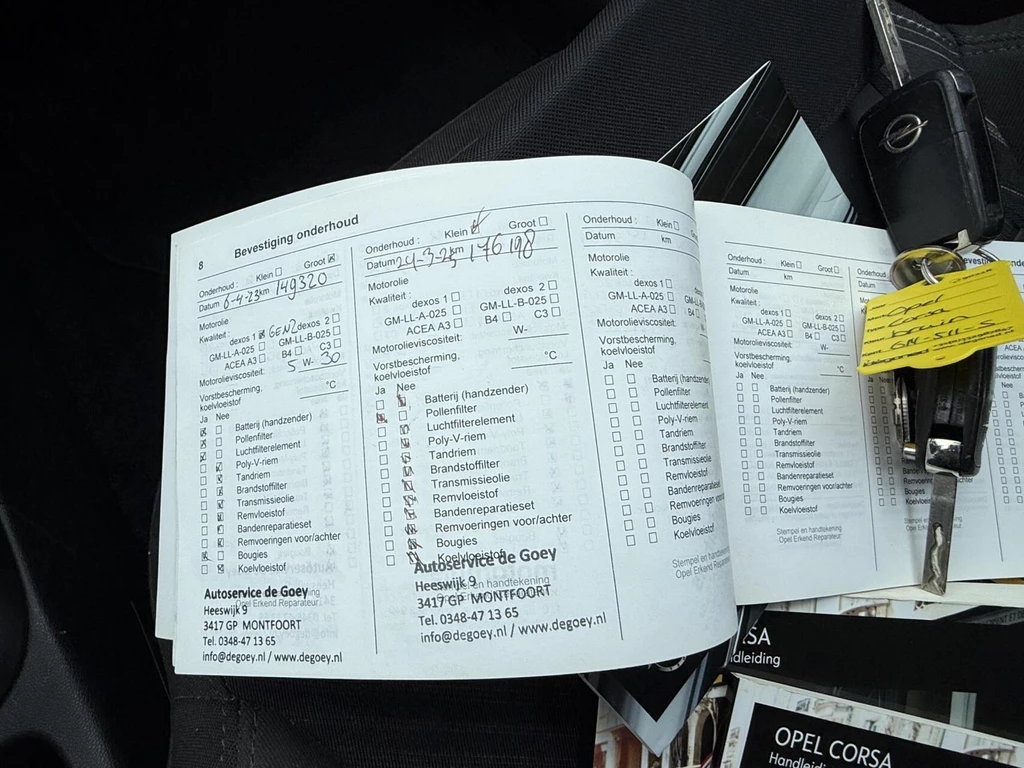 8
Bevestiging onderhoud
Onderhoud : Klein Groot
Datum 6-4-23 km 149320
Motorolie
Kwaliteit : dexos 1 GEN2 dexos 2
GM-LL-A-025 GM-LL-B-025
ACEA A3 B4 C3
Motorolieviscositeit: 5 W- 30
Vorstbescherming,
koelvloeistof °C
Ja Nee
Batterij (handzender)
Pollenfilter
Luchtfilterelement
Poly-V-riem
Tandriem
Brandstoffilter
Transmissieolie
Remvloeistof
Bandenreparatieset
Remvoeringen voor/achter
Bougies
Koelvloeistof
Opel Erkend Reparateur
Autoservice de Goey
Heeswijk 9
3417 GP MONTFOORT
Tel. 0348-47 13 65
info@degoey.nl / www.degoey.nl
Onderhoud : Klein Groot
Datum 24-3-25 km 176198
Motorolie
Kwaliteit : dexos 1 dexos 2
GM-LL-A-025 GM-LL-B-025
ACEA A3 B4 C3
Motorolieviscositeit: W-
Vorstbescherming,
koelvloeistof °C
Ja Nee
Batterij (handzender)
Pollenfilter
Luchtfilterelement
Poly-V-riem
Tandriem
Brandstoffilter
Transmissieolie
Remvloeistof
Bandenreparatieset
Remvoeringen voor/achter
Bougies
Koelvloeistof
Autoservice de Goey
Heeswijk 9
3417 GP MONTFOORT
Tel. 0348-47 13 65
info@degoey.nl / www.degoey.nl
Onderhoud : Klein
Datum km
Motorolie
Kwaliteit : dexos 1
GM-LL-A-025
ACEA A3
Motorolieviscositeit:
Vorstbescherming,
koelvloeistof
Ja Nee
Batterij (handzender)
Pollenfilter
Luchtfilterelement
Poly-V-riem
Tandriem
Brandstoffilter
Transmissieolie
Remvloeistof
Bandenreparatieset
Remvoeringen voor
Bougies
Koelvloeistof
Stempel en handtekening
Opel Erkend
Onderhoud : Klein Groot
Datum km
Motorolie
Kwaliteit : dexos 1 dexos 2
GM-LL-A-025 GM-LL-B-025
ACEA A3 B4 C3
Motorolieviscositeit: W-
Vorstbescherming,
koelvloeistof °C
Ja Nee
Batterij (handzender)
Pollenfilter
Luchtfilterelement
Poly-V-riem
Tandriem
Brandstoffilter
Transmissieolie
Remvloeistof
Bandenreparatieset
Remvoeringen voor/achter
Bougies
Koelvloeistof
Stempel en handtekening
Opel Erkend Reparateur
Opel
Corsa
OPEL CORSA